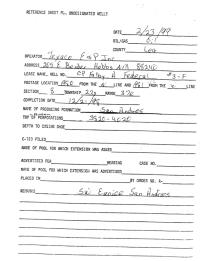 REFERENCE SHEET FOR UNDESIGNATED WELLS
DATE 2/23/99
OIL/GAS Oil
COUNTY Lea
OPERATOR Texaco E&P Inc
ADDRESS 205 E Bender Hobbs NM 88240
LEASE NAME, WELL NO. A Federal #3-F
FOOTAGE LOCATION 1980 FROM THE N LINE AND 1981 FROM THE W LINE
SECTION TOWNSHIP 22s RANGE 37e
COMPLETION DATE
NAME OF PRODUCING FORMATION San Andres
TOP OF PERFORATIONS 3920-4020
DEPTH TO CASING SHOE
C-123 FILED
NAME OF POOL FOR WHICH EXTENSION WAS ASKED
ADVERTISED FOR HEARING CASE NO.
NAME OF POOL FOR WHICH EXTENSION WAS ADVERTISED
PLACED IN BY ORDER NO. R-
REMARKS Eunice San Andres